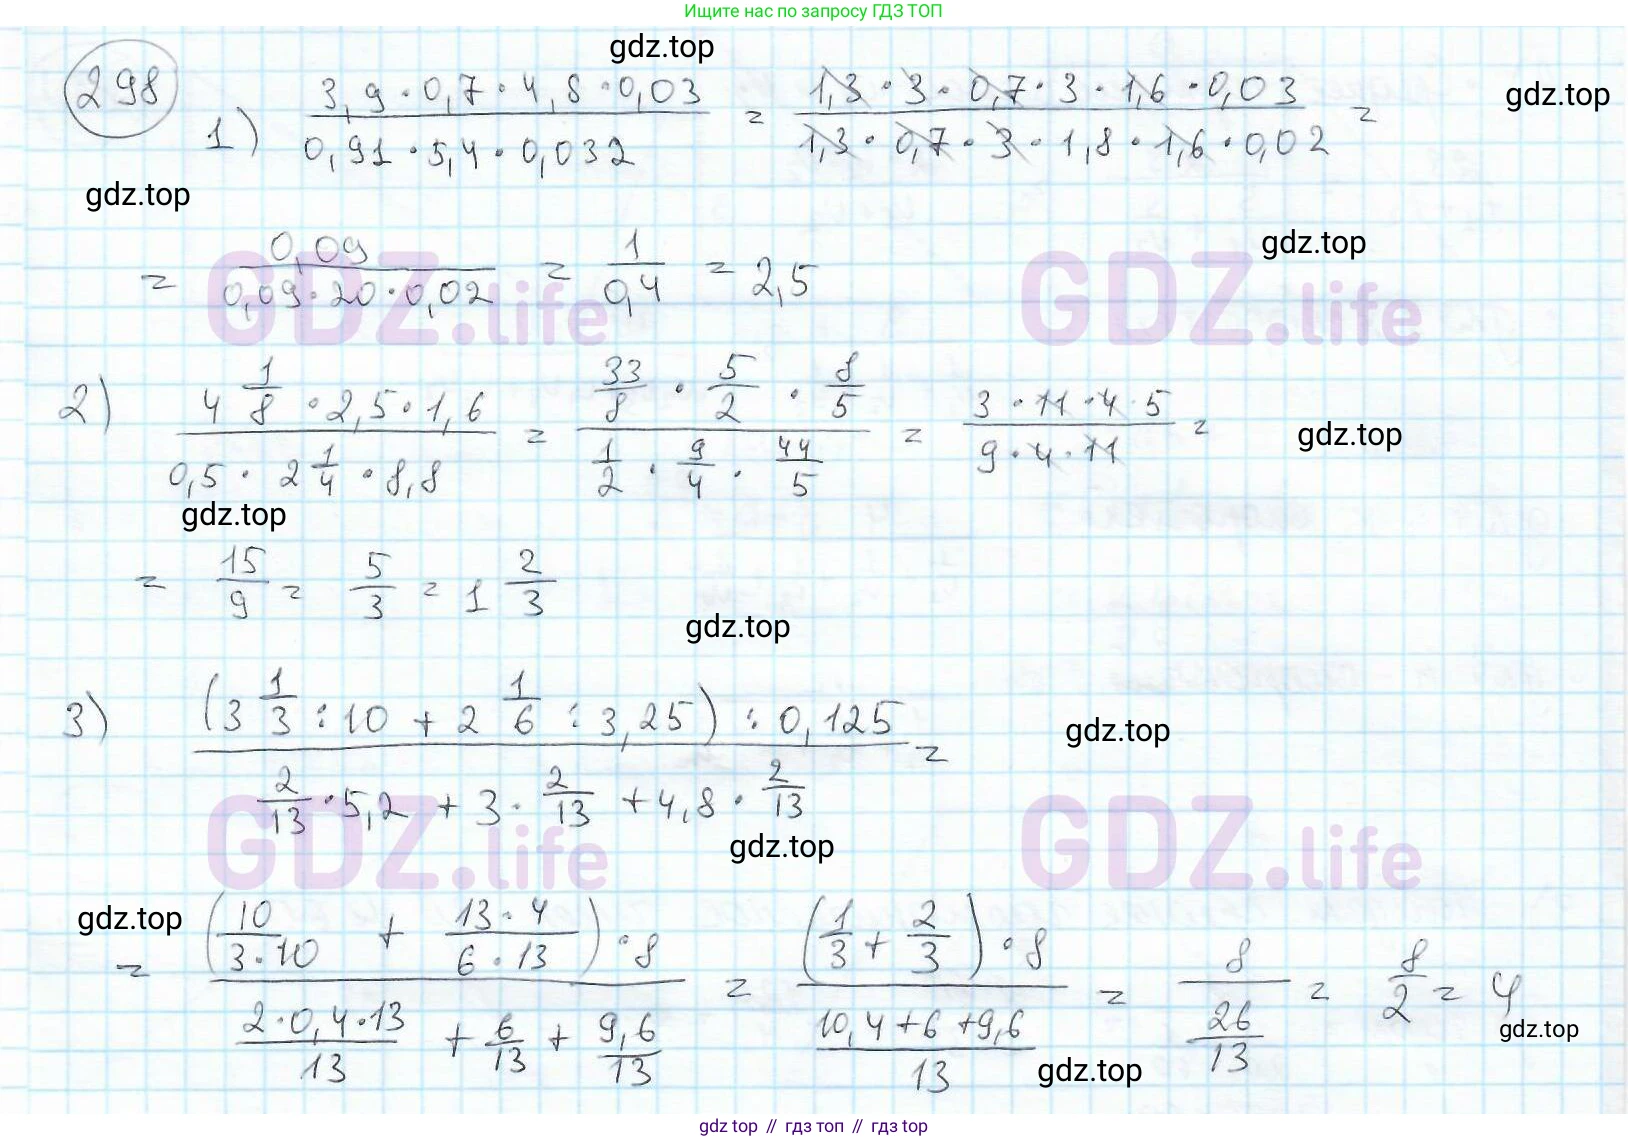 Ищите нас по запросу ГДЗ ТОП
gdz.top
298
1) (3,9 · 0,7 · 4,8 · 0,03)/(0,91 · 5,4 · 0,032) = (1,3 · 3 · 0,7 · 3 · 1,6 · 0,03)/(1,3 · 0,7 · 3 · 1,8 · 1,6 · 0,02) =
gdz.top
gdz.top
gdz.top
= 0,09/(0,09 · 20 · 0,02) = 1/0,4 = 2,5
GDZ.life GDZ.life
2) (4 1/8 · 2,5 · 1,6)/(0,5 · 2 1/4 · 8,8) = (33/8 · 5/2 · 8/5)/(1/2 · 9/4 · 44/5) = (3 · 11 · 4 · 5)/(9 · 4 · 11) =
gdz.top
gdz.top
= 15/9 = 5/3 = 1 2/3
gdz.top
3) ((3 1/3 : 10 + 2 1/6 : 3,25) : 0,125)/(2/13 · 5,2 + 3 · 2/13 + 4,8 · 2/13) =
gdz.top
GDZ.life GDZ.life
gdz.top
gdz.top
= ((10/(3 · 10) + (13 · 4)/(6 · 13)) · 8)/((2 · 0,4 · 13)/13 + 6/13 + 9,6/13) = ((1/3 + 2/3) · 8)/((10,4 + 6 + 9,6)/13) = 8/(26/13) = 8/2 = 4
gdz.top
gdz.top
gdz.top // гдз топ // gdz top